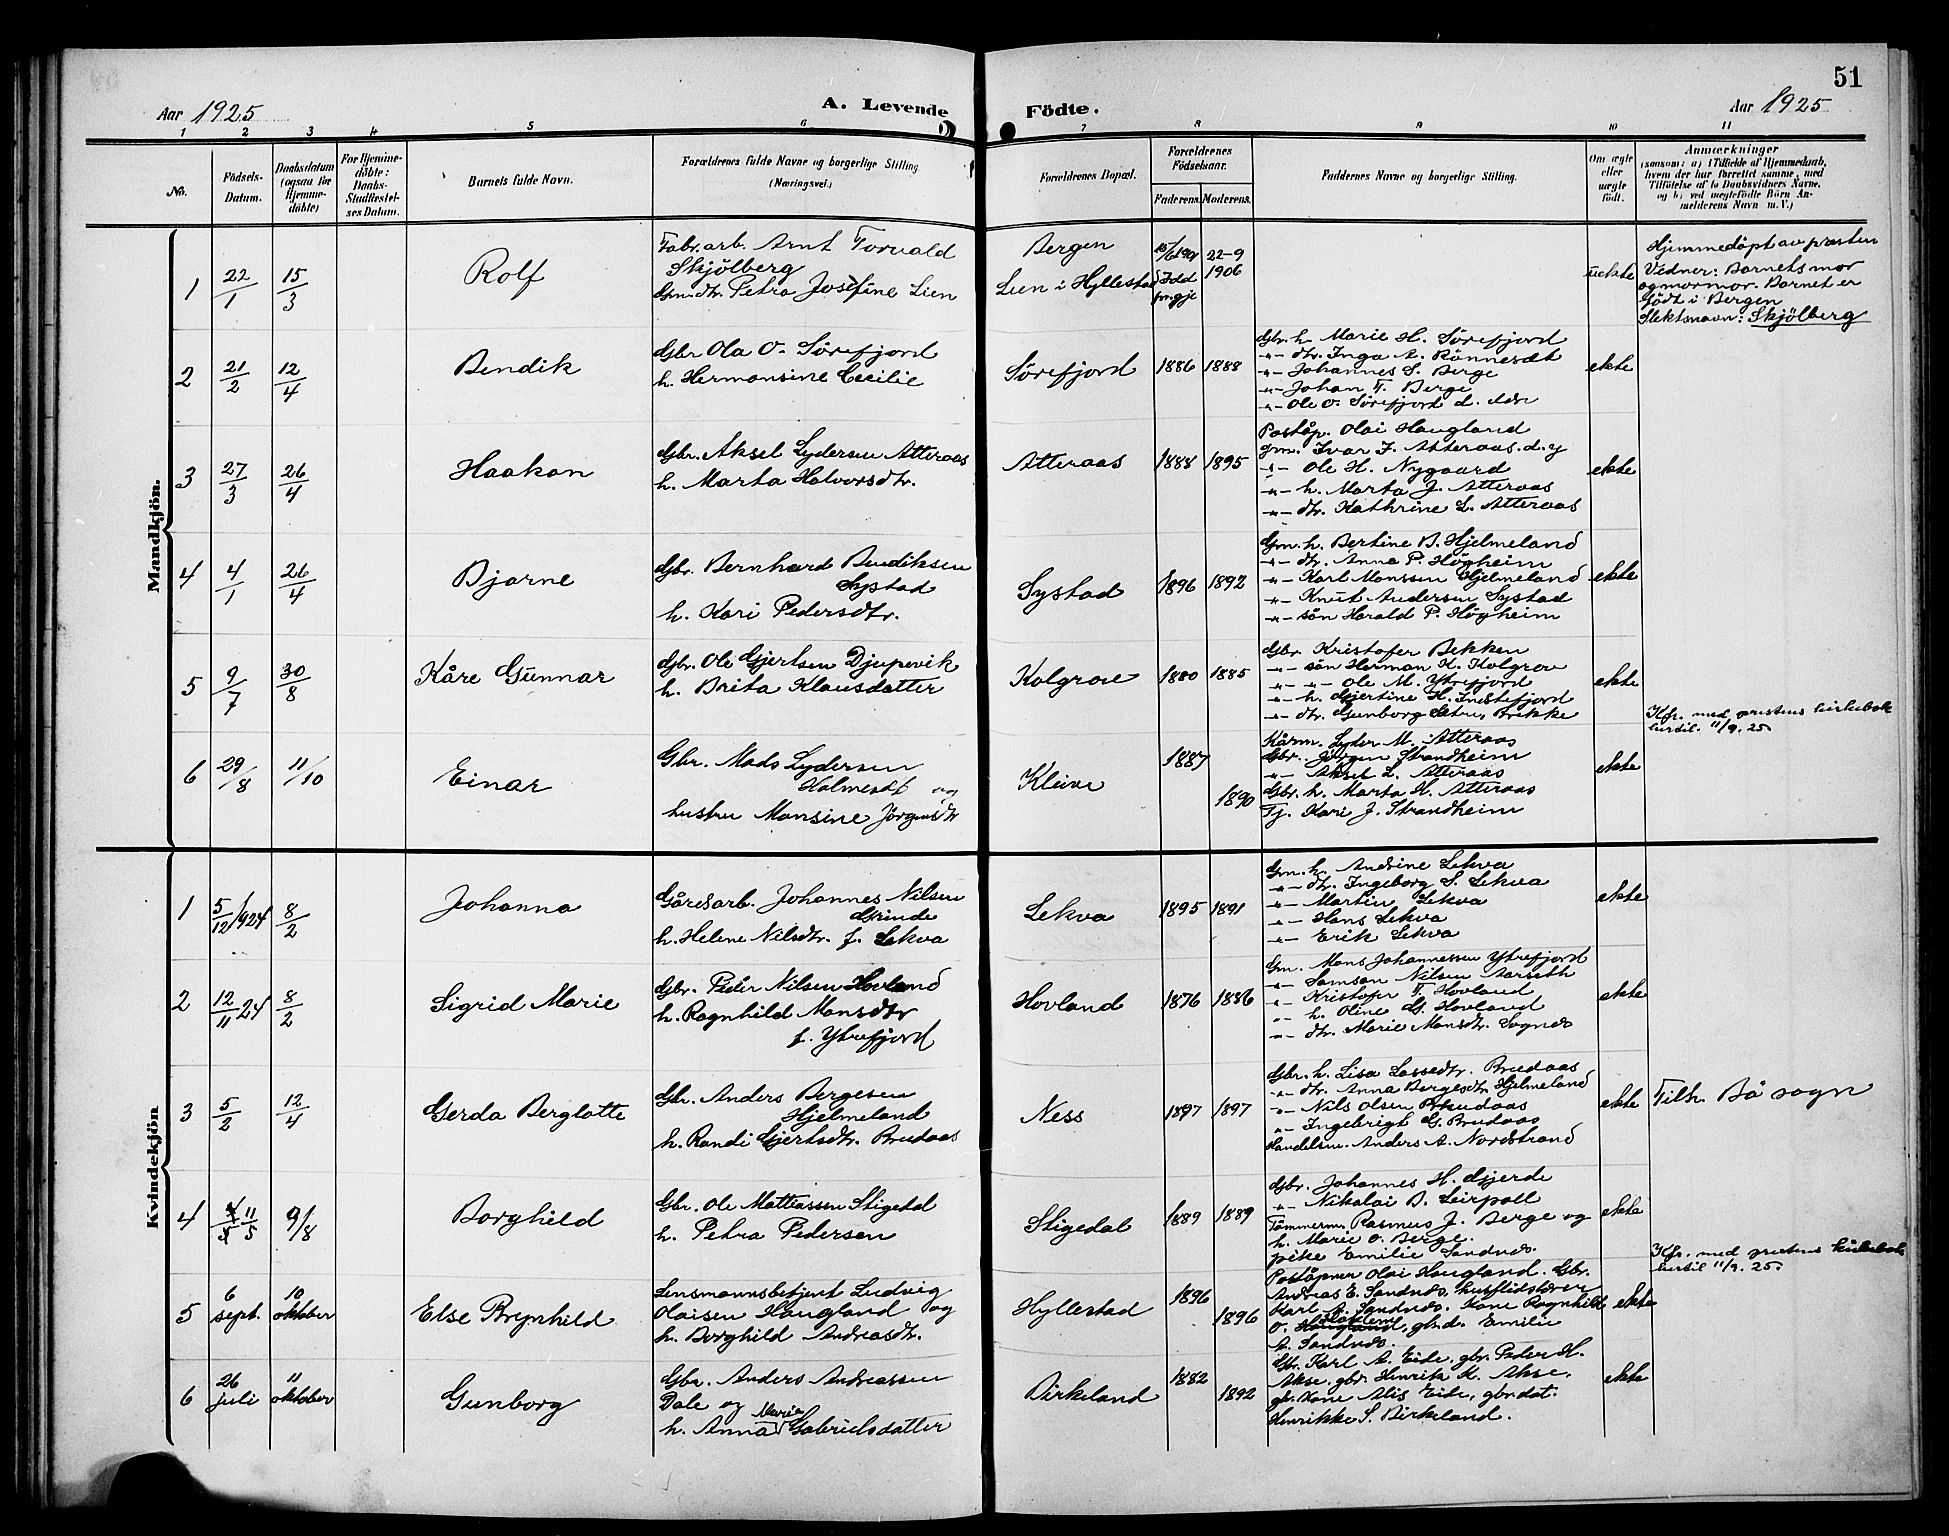 51
Aar 1925
A. Levende Födte.
Aar 1925
1 2 3 4 5 6 7 8 9 10 11
No.
Födsels-
Datum.
Daabsdatum
(ogsaa for
Hjemme-
döbte)
For Hjemme-
döbte:
Daabs-
Stadfæstel-
ses Datum.
Barnets fulde Navn.
Forældrenes fulde Navne og borgerlige Stilling
(Næringsvei.)
Forældrenes Bopæl.
Forældrenes
Födselsaar.
Faderens. Moderens.
Faddernes Navne og borgerlige Stilling.
Om ægte
eller
uægte
födt.
Anmærkninger
(saasom: a) i Tilfælde af Hjemmedaab,
hvem der har forrettet samme, med
Tilföielse af to Daabsvidners Navne,
og b) ved uægtefödte Börn An-
melderens Navn m. V.)
Mandkjön.
1
22/1
15/3
Rolf
Fabr. arb. Arnt Torvald
Skjölberg
Gm. dtr. Petra Josefine Lien
Bergen
Lien i Hyllestad
22-9
1906
uekte
Hjemmedöpt av presten
Vidner: Barnets mor
og mormor. Barnet er
födt i Bergen
Slektsnavn: Skjölberg
2
21/2
12/4
Bendik
Gbr. Ola O. Sörefjord
h. Hermansine Cecilie
Sörefjord
1886 1888
Gbr. h. Marie H. Sörefjord
-"- dtr. Inga A. Rönneset
-"- Johannes S. Berge
-"- Johan T. Berge
-"- Ole O. Sörefjord d. eldre
ekte
3
27/3
26/4
Haakon
Gbr. Aksel Lydersen Atteraas
h. Marta Halvorsdtr.
Atteraas
1888 1895
Poståp. Olai Haugland
gm. Ivar J. Atteraas d. y
-"- Ole H. Nygaard
-"- h. Marta J. Atteraas
-"- dtr. Kathrine L. Atteraas
ekte
4
4/1
26/4
Bjarne
Gbr. Bernhard Bendiksen
Systad
h. Kari Pedersdtr.
Systad
1896 1892
Gm. h. Bertine B. Hjelmeland
-"- dtr. Anna P. Högheim
-"- Karl Monssen Hjelmeland
-"- Knut Andersen Systad
-"- sön Harald P. Högheim
ekte
5
9/7
30/8
Kåre Gunnar
Gbr. Ole Gjertsen Djupevik
h. Brita Klausdatter
Kolgrove
1880 1885
Gbr. Kristofer Bekken
-"- sön Herman K. Kolgrov
-"- -"- Ole M. Ytrefjord
-"- h. Gjertine H. Indstefjord
-"- dtr. Gunborg Sætre, Brekke
ekte
Kfr. med prestens kirkebok
hertil. 11/9. 25
6
29/8
11/10
Einar
Gbr. Mads Lydersen
Holmeset og
hustru Monsine Jörgensdtr
Kleive
1887
1890
Kårm. Lyder M. Atteraas
Gbr. Jörgen Strandheim
-"- Aksel L. Atteraas
Gbr. h. Marta H. Atteraas
Tj. Kari J. Strandheim
ekte
Kvindekjön
1
5/12 1924
8/2
Johanna
Gårdsarb. Johannes Nilsen
Grinde
h. Helene Nilsdtr. f. Lekva
Lekva
1895 1891
Gm. h. Andrine Lekva
-"- dtr. Ingeborg S. Lekva
-"- Martin Lekva
-"- Hans Lekva
-"- Erik Lekva
ekte
2
12/11 24
8/2
Sigrid Marie
Gbr. Peder Nilsen Hovland
h. Ragnhild Monsdtr
f. Ytrefjord
Hovland
1876 1886
Gm. Mons Johannessen Ytrefjord
-"- Samson Nilsen Aarseth
-"- Kristofer T. Hovland
-"- h. Oline G. Hovland
-"- dtr. Marie Monsdtr. Sognes
ekte
3
5/2
12/4
Gerda Berglotte
Gbr. Anders Bergesen
Hjelmeland
h. Randi Gjertsdtr. Brudaas
Ness
1897 1897
Gbr. h. Lisa Lassedtr. Brudaas
-"- dtr. Anna Bergesdtr. Hjelmeland
-"- Nils Olsen Brudaas
-"- Ingebrigt G. Brudaas
Handelsm. Anders A. Nordstrand
ekte
Tilh. Bö sogn
4
11/5
9/8
Borghild
Gbr. Ole Mattiassen Stigedal
h. Petra Pedersen
Stigedal
1889 1889
Gbr. Johannes H. Gjerde
-"- Nikolai B. Leirpoll
Tömmerm. Rasmus J. Berge og
h. Marie O. Berge.
pike Emilie Sandnes.
ekte
Kfr. med prestens kirkebok
hertil 11/9. 25
5
6 sept.
10 oktober
Else Brynhild
Lensmannsbetjent Ludvig
Olaisen Haugland og
h. Borghild Andreasdtr.
Hyllestad
1896
1896
Poståpner Olai Haugland. Gbr.
Andreas E. Sandnes, husflidslærer
Karl A. Sandnes. Kone Ragnhild
O. Haugland, gbr.d. Emilie
A. Sandnes.
ekte
6
26 juli
11 oktober
Gunborg
Gbr. Anders Andreassen
Dale og
h. Anna Marie Gabrielsdatter
Birkeland
1882
1892
Gbr. Karl A. Eide, gbr. Peder H.
Akse, gbr. Henrik K. Akse,
gbr. kone Alis Eide, gbr. dat.
Henrikke S. Birkeland.
ekte